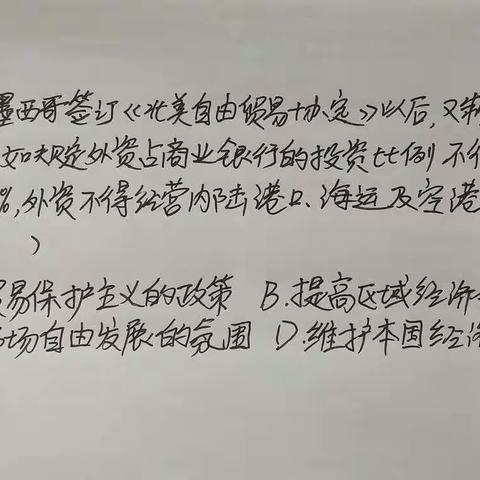 墨西哥签订《北美自由贸易协定》以后,又制
如规定外资占商业银行的投资比例不
%,外资不得经营内陆港口、海运及空港
)
贸易保护主义的政策 B.提高区域经济
场自由发展的氛围 D.维护本国经济